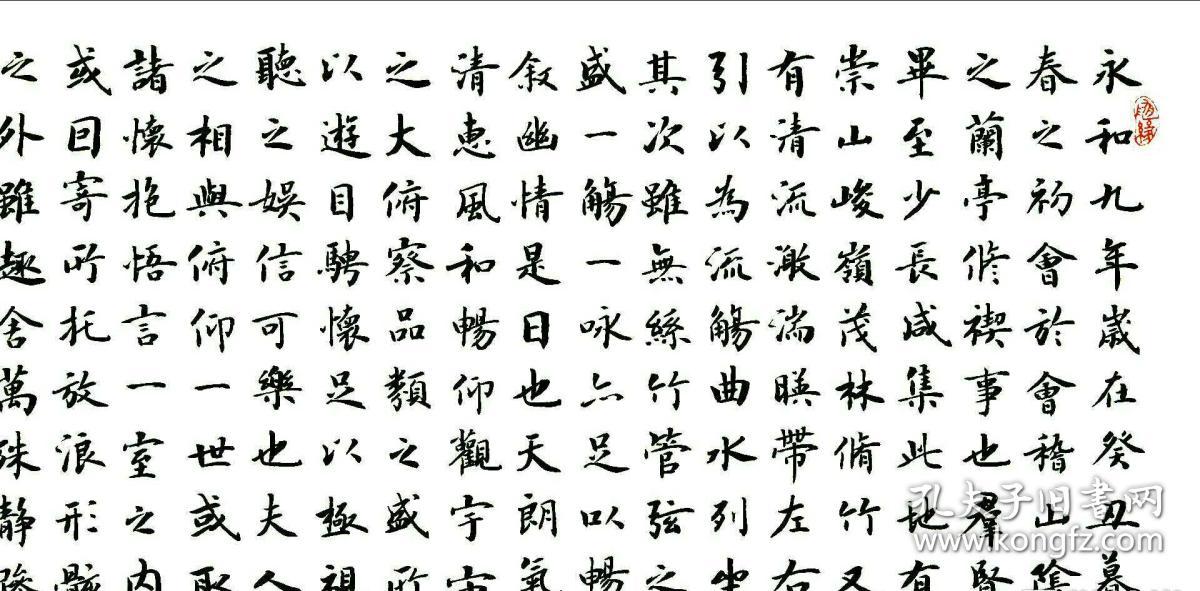 永和九年歲在癸丑暮
春之初會於會稽山陰
之蘭亭脩禊事也羣賢
畢至少長咸集此地有
崇山峻嶺茂林脩竹又
有清流激湍暎帶左右
引以為流觴曲水列坐
其次雖無絲竹管弦之
盛一觴一咏亦足以暢
敘幽情是日也天朗氣
清惠風和暢仰觀宇宙
之大俯察品類之盛所
以遊目騁懷足以極視
聽之娛信可樂也夫人
之相與俯仰一世或取
諸懷抱悟言一室之內
或因寄所托放浪形骸
之外雖趣舍萬殊静躁
孔夫子旧书网
www.kongfz.com